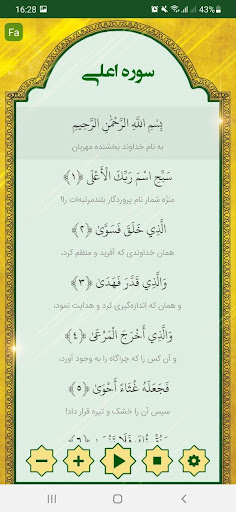 16:28
43%
Fa
سوره اعلی
بِسْمِ اللَّهِ الرَّحْمَٰنِ الرَّحِيمِ
به نام خداوند بخشنده مهربان
سَبِّحِ اسْمَ رَبِّكَ الْأَعْلَى ﴿١﴾
منزّه شمار نام پروردگار بلندمرتبه‌ات را!
الَّذِي خَلَقَ فَسَوَّىٰ ﴿٢﴾
همان خداوندی که آفرید و منظم کرد،
وَالَّذِي قَدَّرَ فَهَدَىٰ ﴿٣﴾
و همان که اندازه‌گیری کرد و هدایت نمود،
وَالَّذِي أَخْرَجَ الْمَرْعَىٰ ﴿٤﴾
و آن کس را که چراگاه را به وجود آورد،
فَجَعَلَهُ غُثَاءً أَحْوَىٰ ﴿٥﴾
سپس آن را خشک و تیره قرار داد!